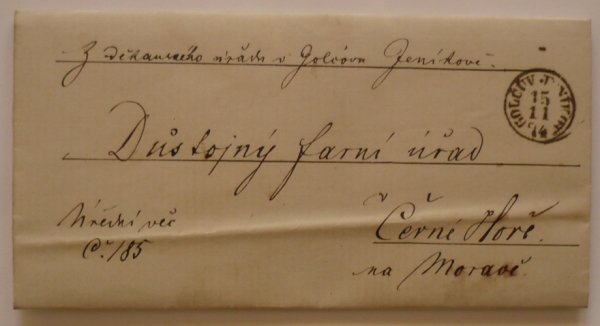 Z děkanského úřadu v Golčovu Jeníkově.
GOLČŮV JENÍKOV
15
11
74
Důstojný farní úřad
v Černé Hoře.
na Moravě.
Úřední věc
Č. 185